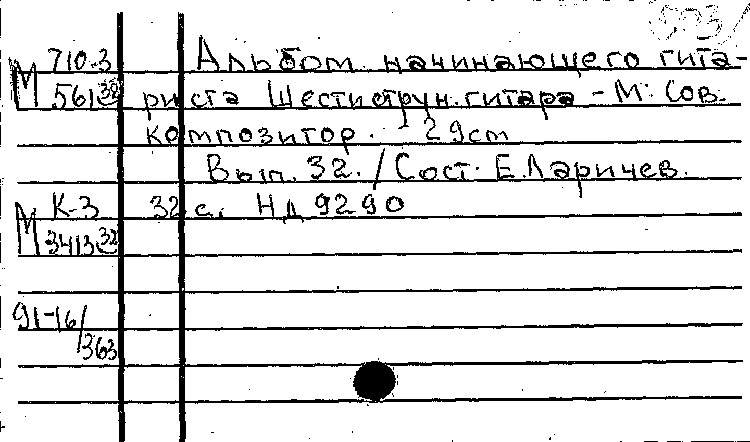 710-3 Альбом начинающего гита-
М 561 32 риста Шестиструн. гитара - М: Сов.
композитор. - 29см
Вып. 32. / Сост. Е. Ларичев.
К-3 32 с. Нд 9290
М 3413 32
91-16/
363